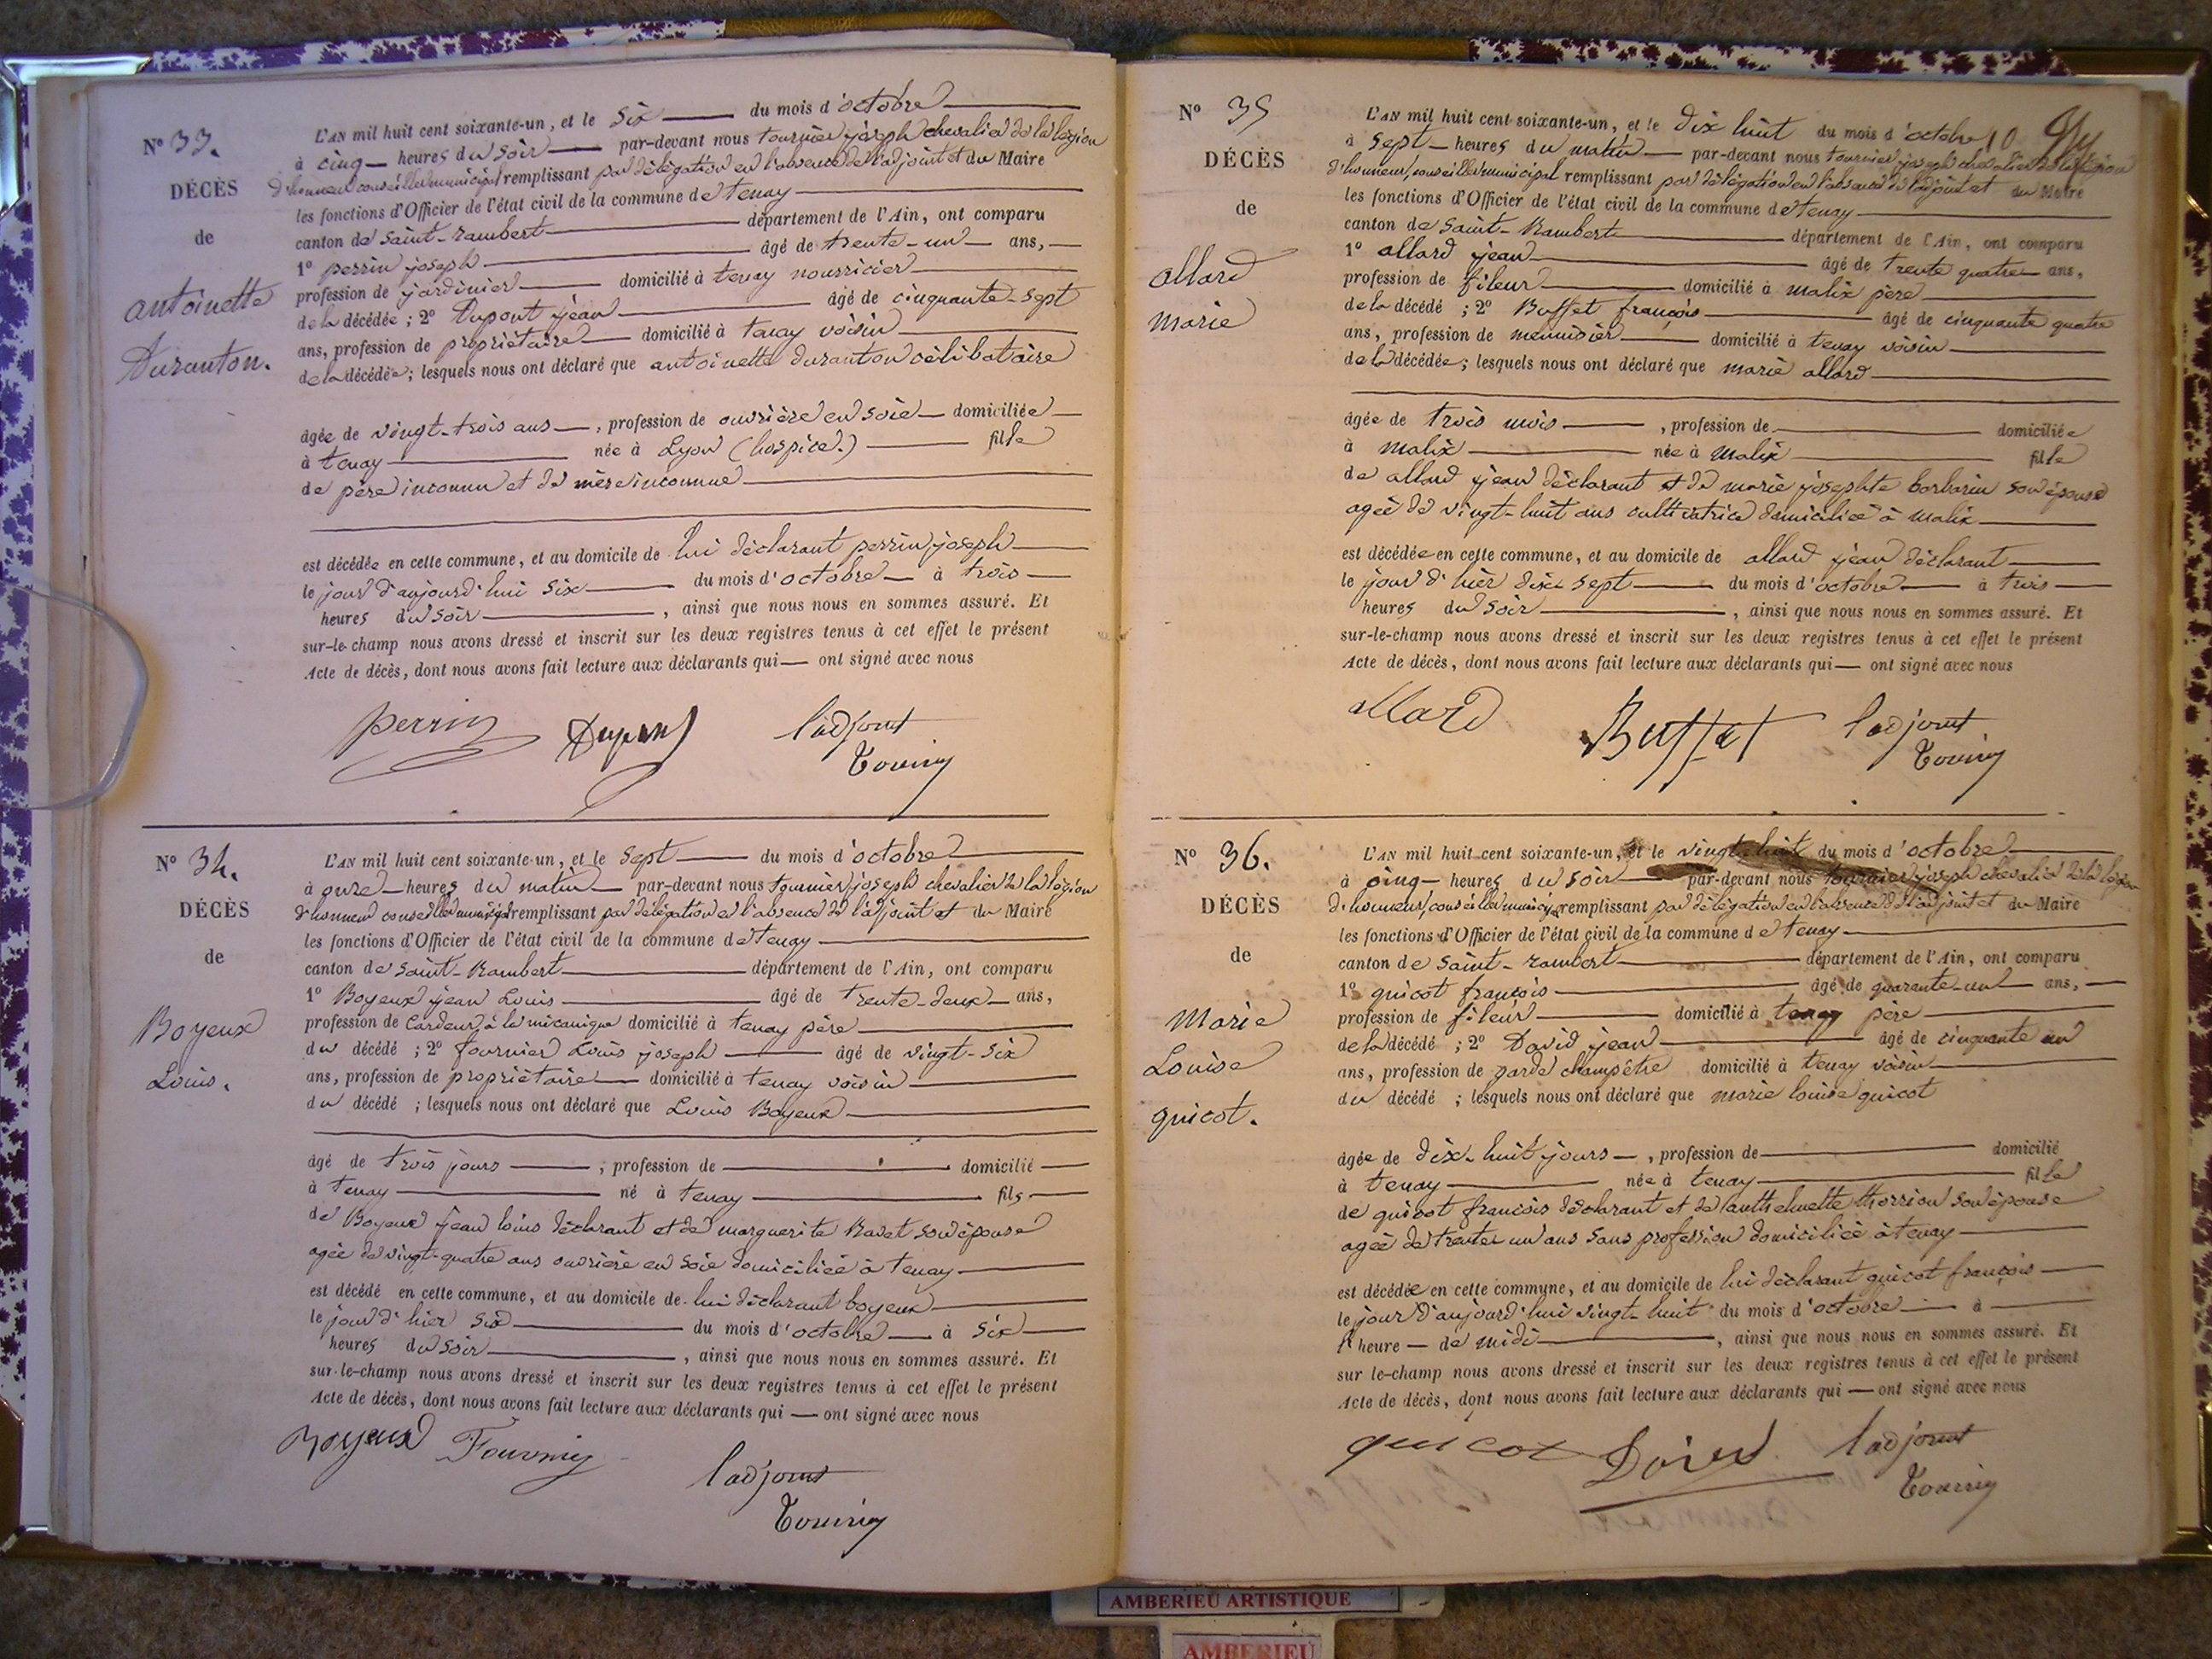 N° 33.
DÉCÈS
de
antoinette
Duranton.
L'AN mil huit cent soixante-un, et le six du mois d'octobre
à cinq heures du soir par-devant nous tournier joseph chevalier de la légion
d'honneur conseiller municipal remplissant par délégation en l'absence de l'adjoint et du Maire
les fonctions d'Officier de l'état civil de la commune de tenay
canton de saint-rambert département de l'Ain, ont comparu
1° perrin joseph âgé de trente-un ans,
profession de jardinier domicilié à tenay nourricier
de la décédée ; 2° Dupont jean âgé de cinquante-sept
ans, profession de propriétaire domicilié à tenay voisin
de la décédée ; lesquels nous ont déclaré que antoinette duranton célibataire
âgée de vingt-trois ans, profession de ouvrière en soie domiciliée
à tenay née à Lyon (hospice.) fille
de père inconnu et de mère inconnue
est décédée en cette commune, et au domicile de lui déclarant perrin joseph
le jour d'aujourd'hui six du mois d'octobre à trois
heures du soir, ainsi que nous nous en sommes assuré. Et
sur-le-champ nous avons dressé et inscrit sur les deux registres tenus à cet effet le présent
Acte de décès, dont nous avons fait lecture aux déclarants qui ont signé avec nous
perrin Dupont l'adjoint
N° 34.
DÉCÈS
de
Boyeux
Louis.
L'AN mil huit cent soixante-un, et le sept du mois d'octobre
à onze heures du matin par-devant nous tournier joseph chevalier de la légion
d'honneur conseiller municipal remplissant par délégation en l'absence de l'adjoint et du Maire
les fonctions d'Officier de l'état civil de la commune de tenay
canton de saint-Rambert département de l'Ain, ont comparu
1° Boyeux jean Louis âgé de trente-deux ans,
profession de Cardeur à la mécanique domicilié à tenay père
du décédé ; 2° fournier Louis joseph âgé de vingt-six
ans, profession de propriétaire domicilié à tenay voisin
du décédé ; lesquels nous ont déclaré que Louis Boyeux
âgé de trois jours, profession de domicilié
à tenay né à tenay fils
de Boyeux jean louis déclarant et de marguerite Ravet son épouse
agée de vingt-quatre ans ouvrière en soie domiciliée à tenay
est décédé en cette commune, et au domicile de lui déclarant boyeux
le jour d'hier six du mois d'octobre à six
heures du soir, ainsi que nous nous en sommes assuré. Et
sur-le-champ nous avons dressé et inscrit sur les deux registres tenus à cet effet le présent
Acte de décès, dont nous avons fait lecture aux déclarants qui ont signé avec nous
Boyeux Fournier
l'adjoint
N° 35
DÉCÈS
de
allard
marie
L'AN mil huit cent soixante-un, et le dix huit du mois d'octobre 10
à sept heures du matin par-devant nous tournier joseph chevalier de la légion
d'honneur, conseiller municipal remplissant par délégation en l'absence de l'adjoint et du Maire
les fonctions d'Officier de l'état civil de la commune de tenay
canton de saint-Rambert département de l'Ain, ont comparu
1° allard jean âgé de trente quatre ans,
profession de fileur domicilié à malix père
de la décédé ; 2° Buffet françois âgé de cinquante quatre
ans, profession de menuisier domicilié à tenay voisin
de la décédée ; lesquels nous ont déclaré que marie allard
âgée de trois mois, profession de domiciliée
à malix née à malix fille
de allard jean déclarant et de marie josephte barbarin son épouse
agée de vingt-huit ans cultivatrice domiciliée à malix
est décédée en cette commune, et au domicile de allard jean déclarant
le jour d'hier dix sept du mois d'octobre à trois
heures du soir, ainsi que nous nous en sommes assuré. Et
sur-le-champ nous avons dressé et inscrit sur les deux registres tenus à cet effet le présent
Acte de décès, dont nous avons fait lecture aux déclarants qui ont signé avec nous
allard Buffet l'adjoint
N° 36.
DÉCÈS
de
Marie
Louise
quicot.
L'AN mil huit cent soixante-un, et le vingt huit du mois d'octobre
à cinq heures du soir par-devant nous tournier joseph chevalier de la légion
d'honneur, conseiller municipal remplissant par délégation en l'absence de l'adjoint et du Maire
les fonctions d'Officier de l'état civil de la commune de tenay
canton de saint-rambert département de l'Ain, ont comparu
1° quicot françois âgé de quarante-un ans,
profession de fileur domicilié à tenay père
de la décédé ; 2° David jean âgé de cinquante un
ans, profession de garde champêtre domicilié à tenay voisin
du décédé ; lesquels nous ont déclaré que marie louise quicot
âgée de dix-huit jours, profession de domicilié
à tenay née à tenay fille
de quicot françois déclarant et de son épouse
agée de trente un ans sans profession domiciliée à tenay
est décédée en cette commune, et au domicile de lui déclarant quicot françois
le jour d'aujourd'hui vingt-huit du mois d'octobre à
l'heure de midi, ainsi que nous nous en sommes assuré. Et
sur-le-champ nous avons dressé et inscrit sur les deux registres tenus à cet effet le présent
Acte de décès, dont nous avons fait lecture aux déclarants qui ont signé avec nous
quicot David l'adjoint
AMBERIEU ARTISTIQUE
AMBERIEU